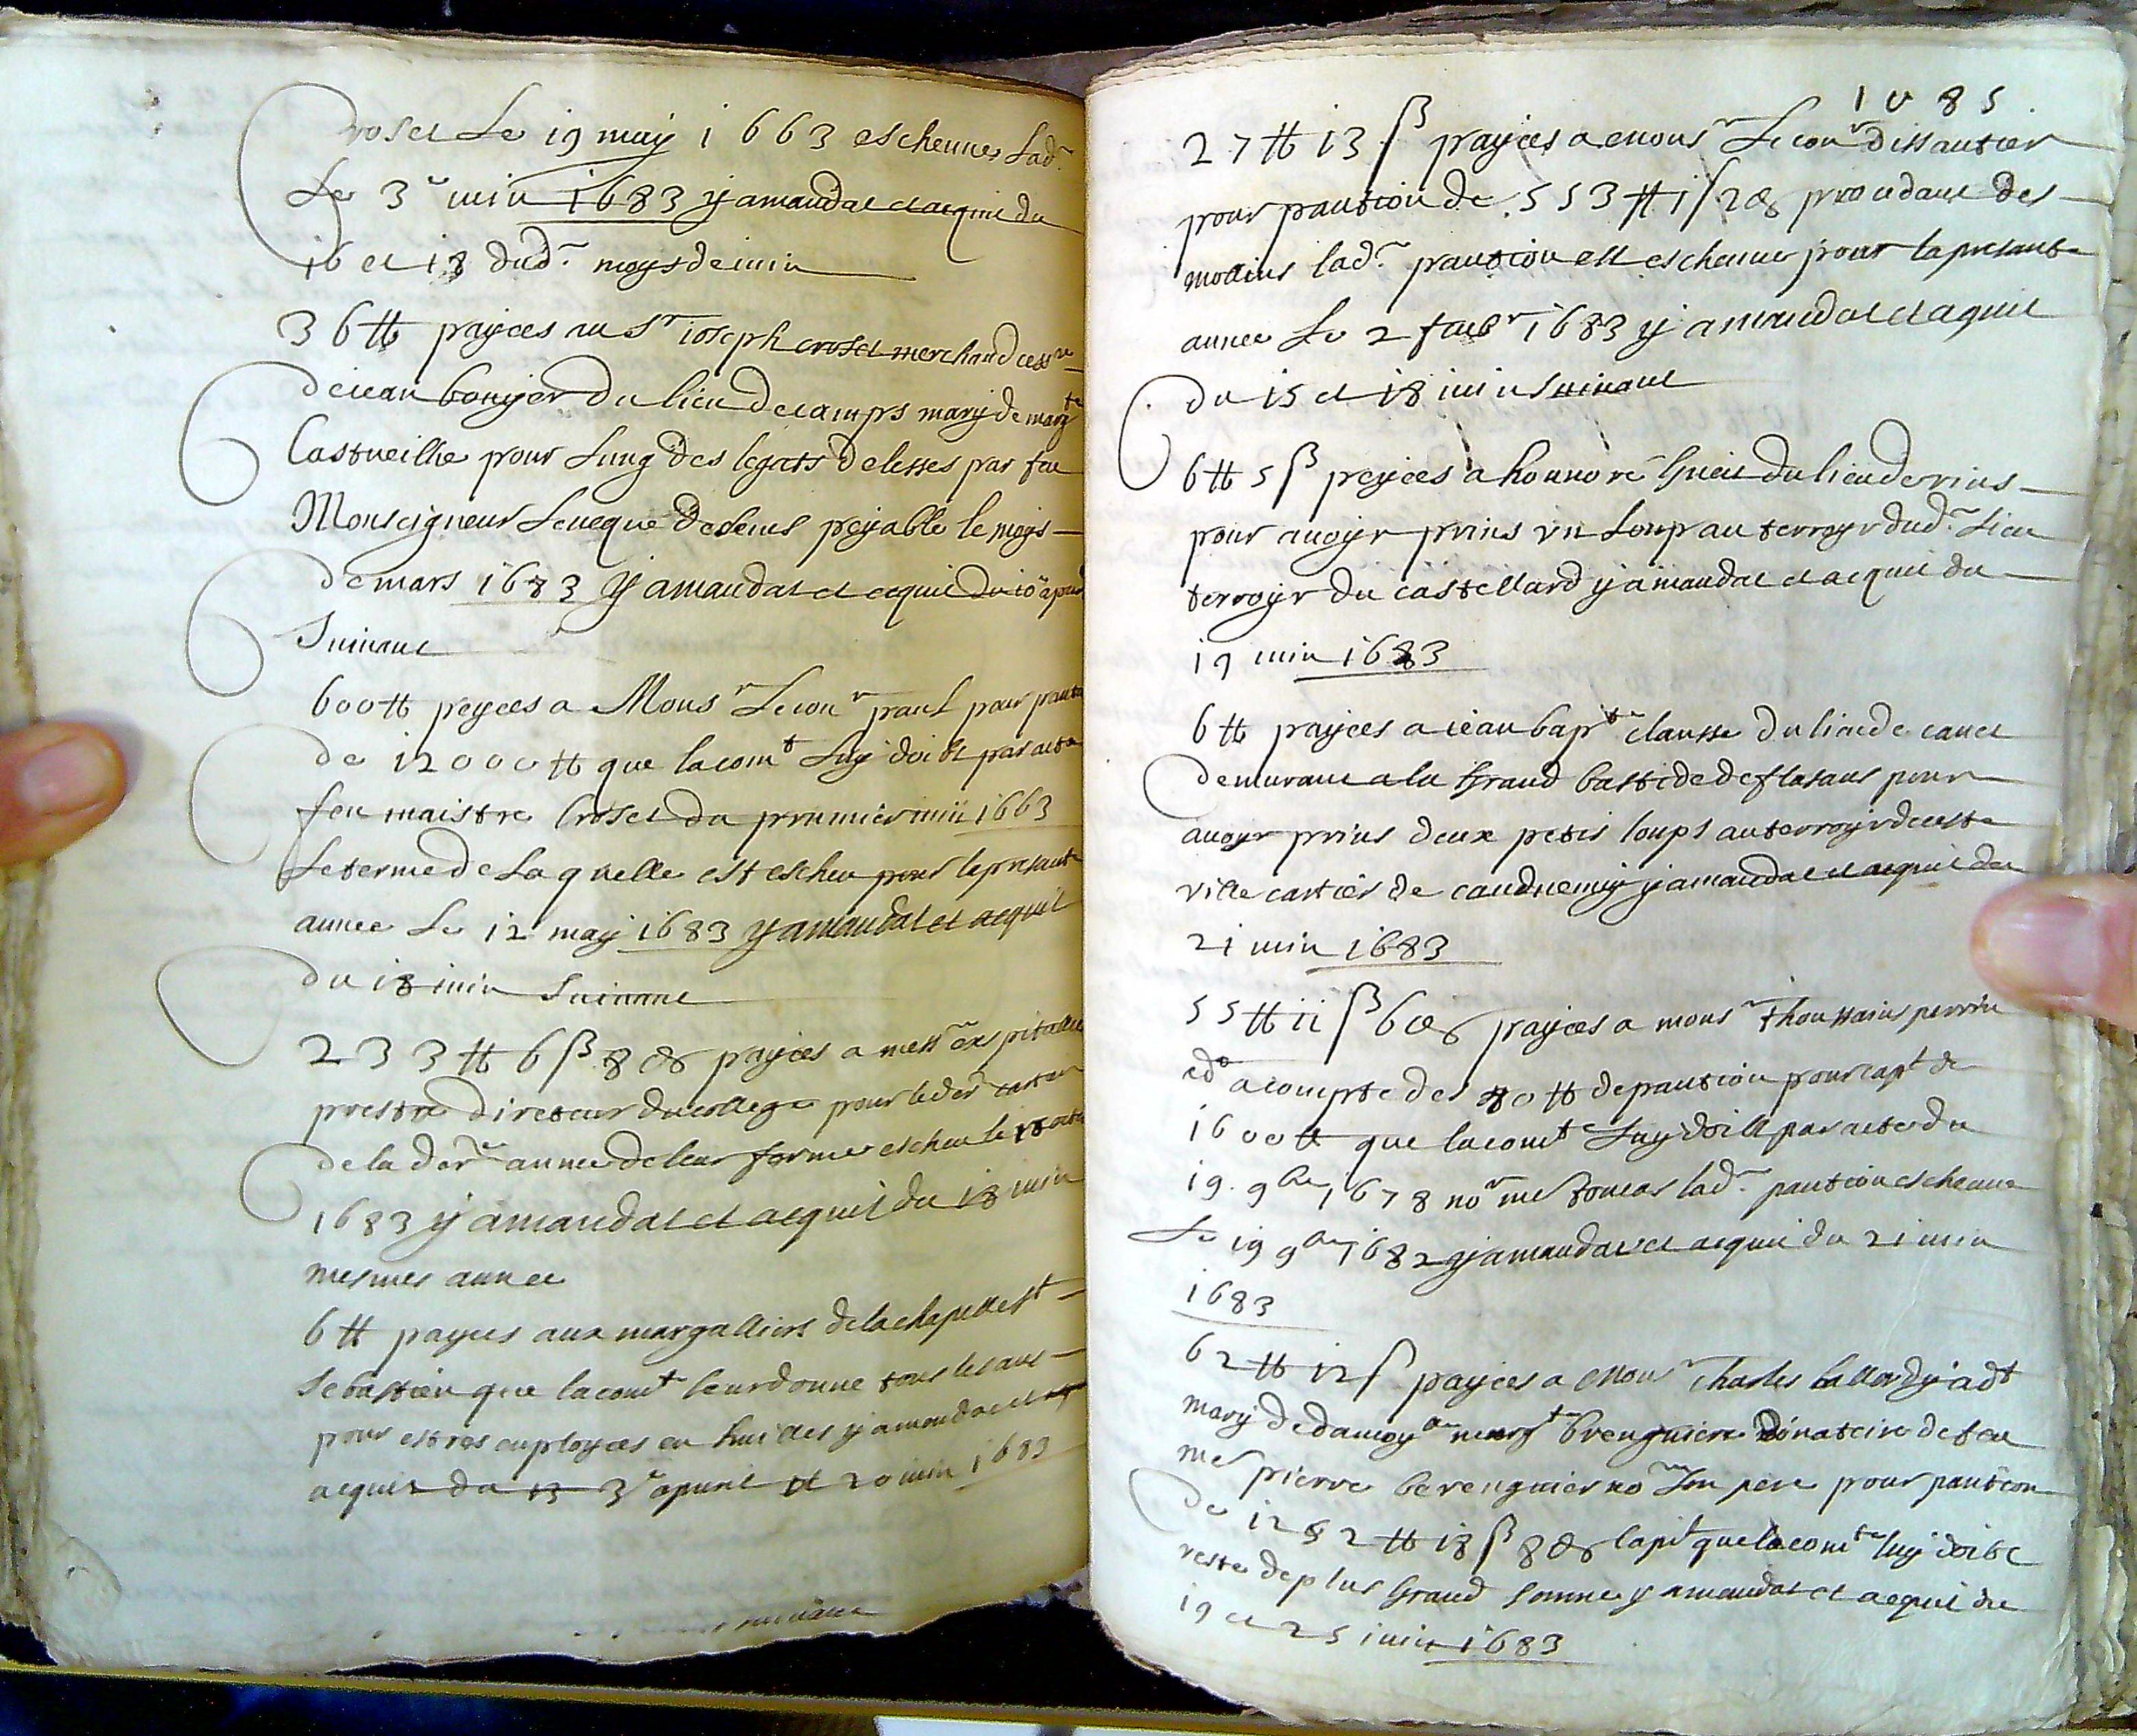 croset Le 19 may 1663 escheues Lad.e
Le 3e juin 1683 y a mandat et acquit du
16 et 18 dud.t moys de juin
36 tt payees au Sr joseph croset merchand cessre
de jean bouyer du lieu de camps mary de margte
Castueilhe pour Lung des legats delesses par feu
Monseigneur Leveque de Senes peyable le moys
de mars 1683 y a mandat et acquit du 10e apvril
Suivant
600 tt peyees a Monsr Le conr paul pour pantion
de 12000 tt que la comt Luy doibt par acte
feu maistre Croset du prumier juin 1663
Le terme de Laquelle est escheu pour la presante
annee Le 12 may 1683 y a mandat et acquit
du 18 juin Suivant
233 tt 6 ß 8 d payees a messre
prestre direteur du college pour le der cartier
de la dere annee de leur ferme escheu le
1683 y a mandat et acquit du 18 juin
mesmes annee
6 tt payees aux margalliers de la chapelle st
Sebastien que la comt leur donne tous les ans
pour estres employees en huilles y a mandat et
acquit du 3e apvril et 20 juin 1683
1085
27 tt 13 ß payees a monsr Le conr dissautier
pour pantion de 553 tt 1 ß 2 d provedant des
mollins lad.e pantion est escheue pour la presante
annee Le 2 febr 1683 y a mandat et aquit
du 15 et 18 juin Suivant
6 tt 5 ß peyees a honnore Gueit du lieu de rins
pour avoyr prins un Loup au terroyr dud.t Lieu
terroyr du castellard y a mandat et acquit du
19 juin 1683
6 tt payees a jean bapte clausse du lieu de canet
demurant a la Grand bastide de flasans pour
avoyr prins deux petis loups au terroyr de ceste
ville cartier de caudnemy y a mandat et acquit du
21 juin 1683
55 tt 11 ß 6 d payees a monsr thoussains perrin
a compte des 80 tt de pantion pour capt de
1600 tt que la comte Luy doibt par acte du
19 9bre 1678 nore me toucas lad.e pantion escheue
Le 19 9bre 1682 y a mandat et acquit du 21 juin
1683
62 tt 12 ß payees a Monsr Charles ballardy adt
mary de damoylle margte brenguiere donateire de feu
me pierre berenguier nore Son pere pour pantion
de 1252 tt 18 ß 8 d capit que la comte luy doibt
reste de plus Grand Somme y a mandat et acquit du
19 et 25 juin 1683